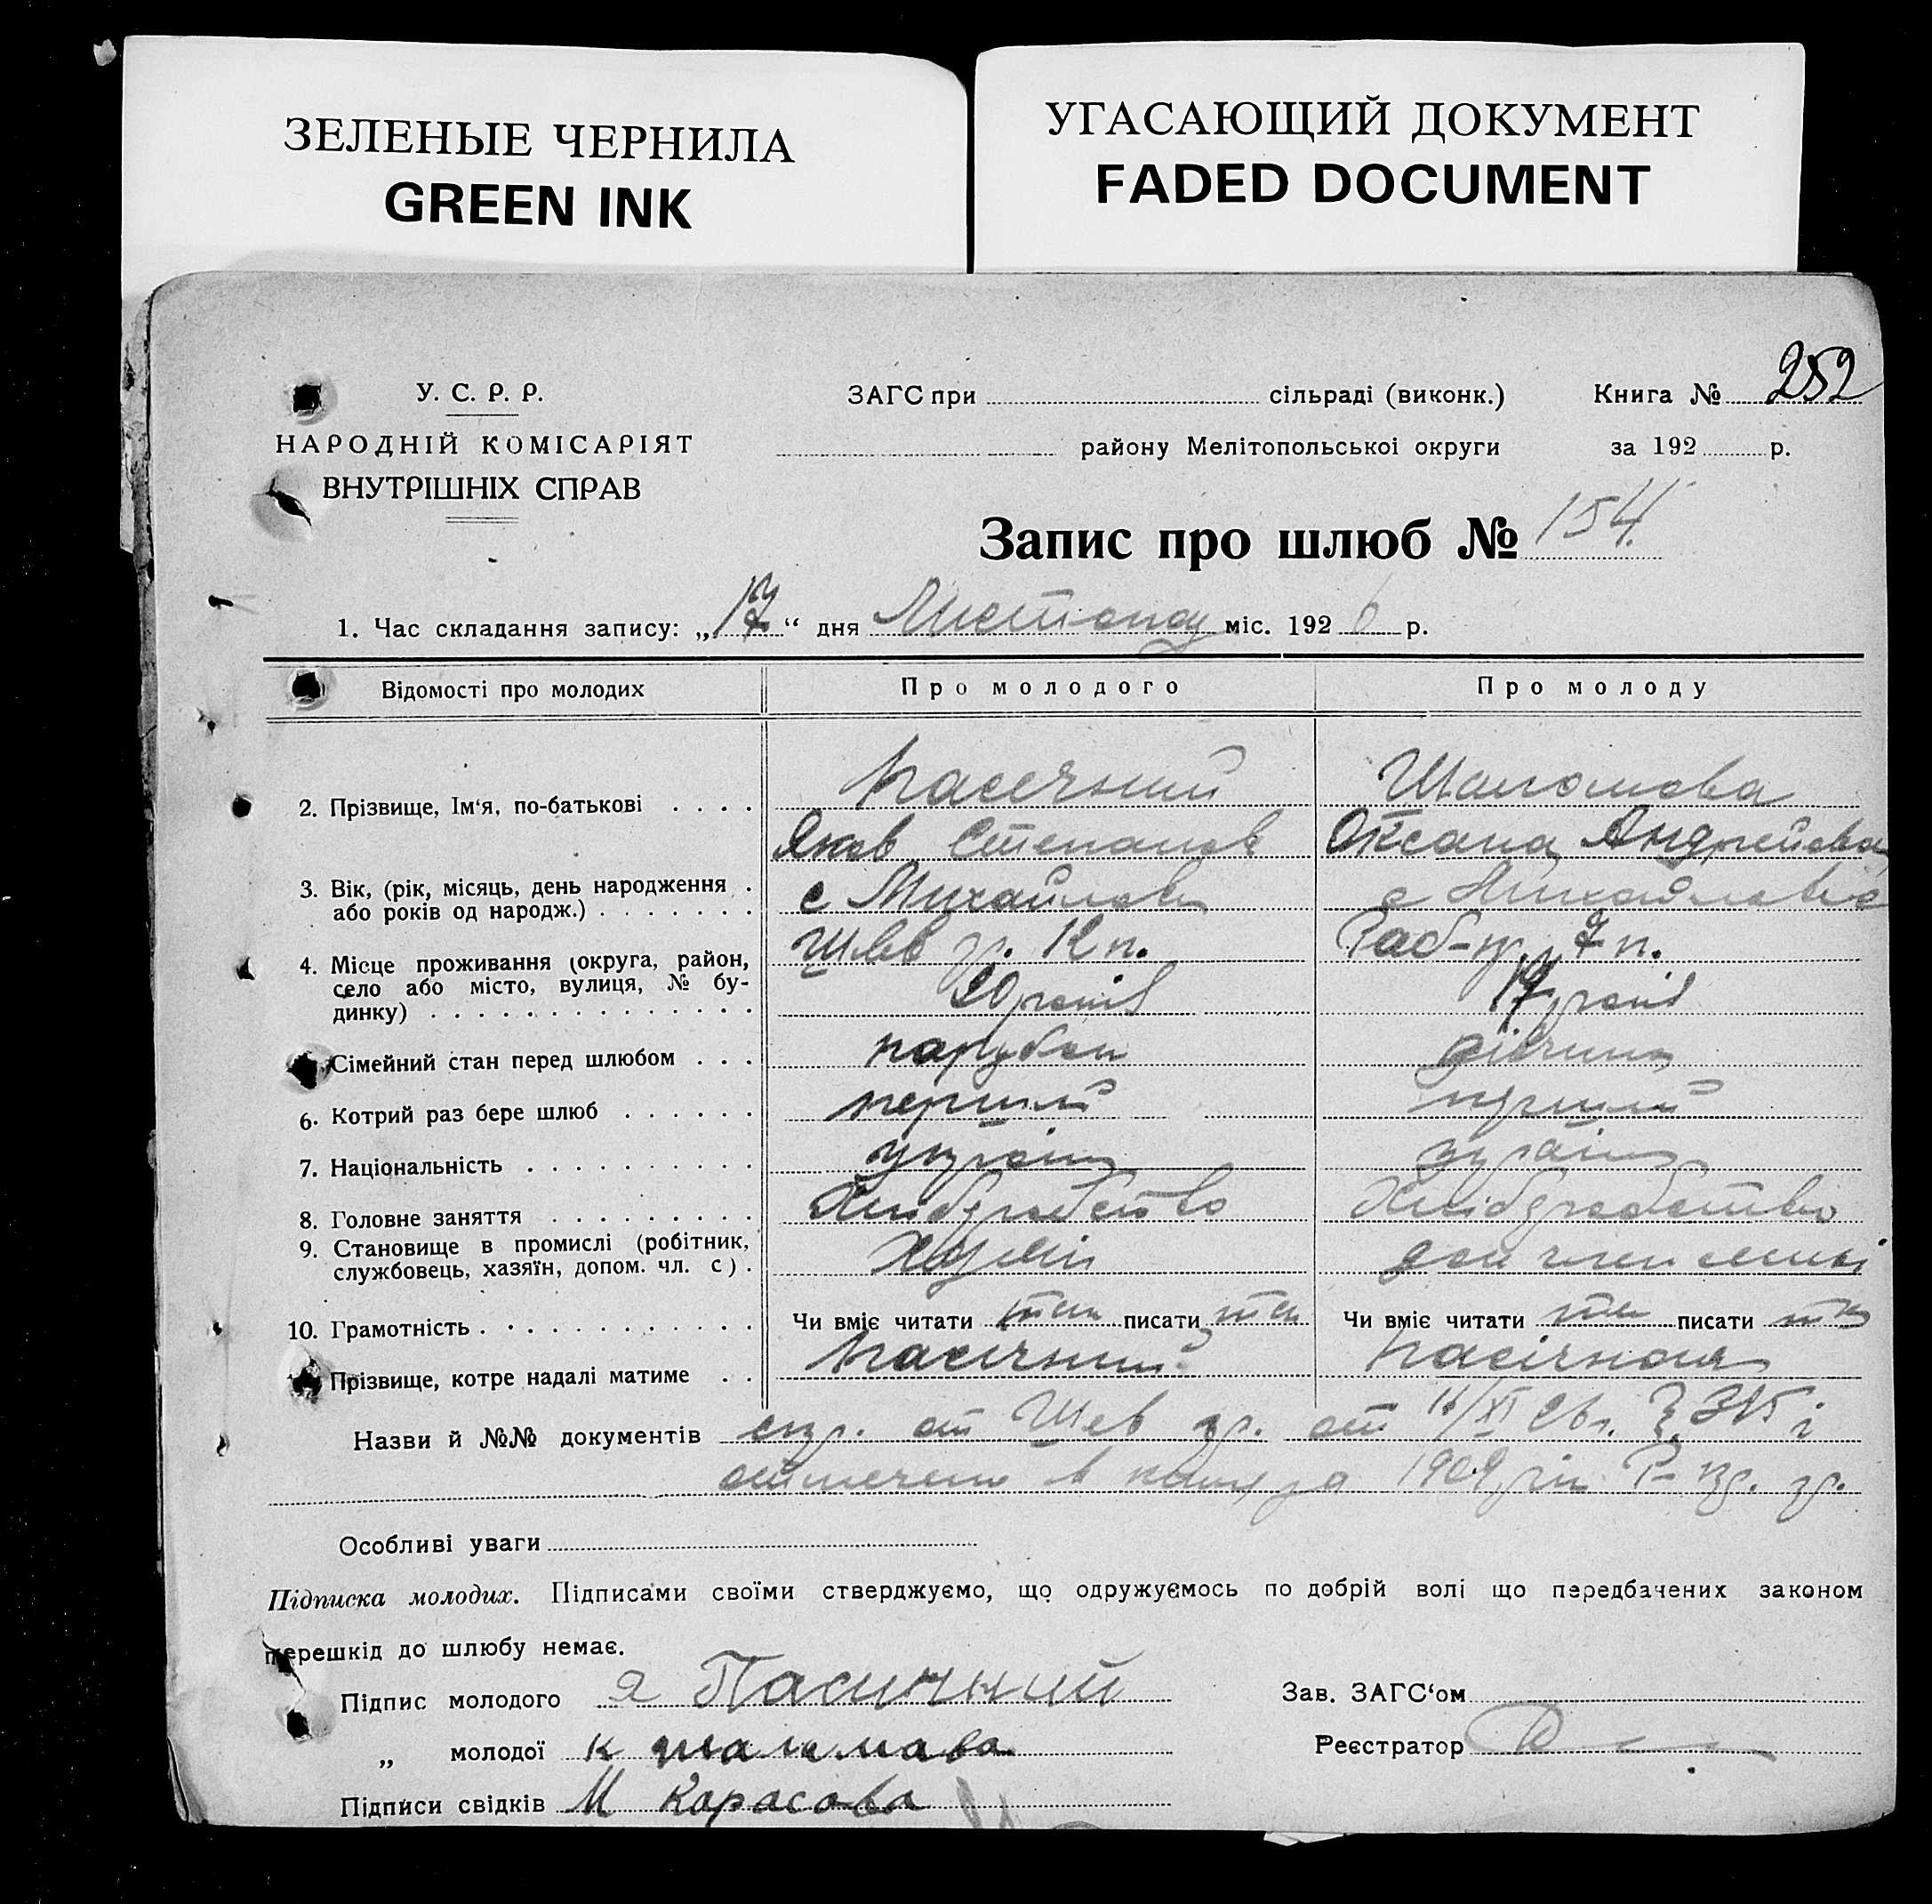 ЗЕЛЕНЫЕ ЧЕРНИЛА
GREEN INK
УГАСАЮЩИЙ ДОКУМЕНТ
FADED DOCUMENT
У. С. Р. Р.
НАРОДНІЙ КОМІСАРІЯТ
ВНУТРІШНІХ СПРАВ
ЗАГС при сільраді (виконк.)
району Мелітопольської округи
Книга № 252
за 192 р.
Запис про шлюб № 154
1. Час складання запису: „17“ дня Листопад міс. 1926 р.
Відомості про молодих Про молодого Про молоду
2. Прізвище, Ім'я, по-батькові . . . . Пасічний
Яков Степанов Оксана Андрейова
3. Вік, (рік, місяць, день народження .
або років од народж.) . . . . . . . с Михайловка с Михайловка
Шев гр. 12 п. Раб-кр. 7 п.
4. Місце проживання (округа, район,
село або місто, вулиця, № бу-
динку) . . . . . . . . . . . . . . 20 років 17 років
Сімейний стан перед шлюбом . . . парубок дівчина
6. Котрий раз бере шлюб . . . . . . перший перший
7. Національність . . . . . . . . . .
8. Головне заняття . . . . . . . . . Хлібробство Хлібробство
9. Становище в промислі (робітник,
службовець, хазяїн, допом. чл. с) . Хазяїн доп член семьі
10. Грамотність . . . . . . . . . . . Чи вміє читати так писати так Чи вміє читати так писати так
Прізвище, котре надалі матиме . . Пасічний Пасічная
Назви й №№ документів от Шев гр. от /XI 26 г. 315 і
в за 1909 рік
Особливі уваги
Підписка молодих. Підписами своїми стверджуємо, що одружуємось по добрій волі що передбачених законом
перешкід до шлюбу немає.
Підпис молодого Я Пасичний
„ молодої К
Підписи свідків М Карасова
Зав. ЗАГС'ом
Реєстратор